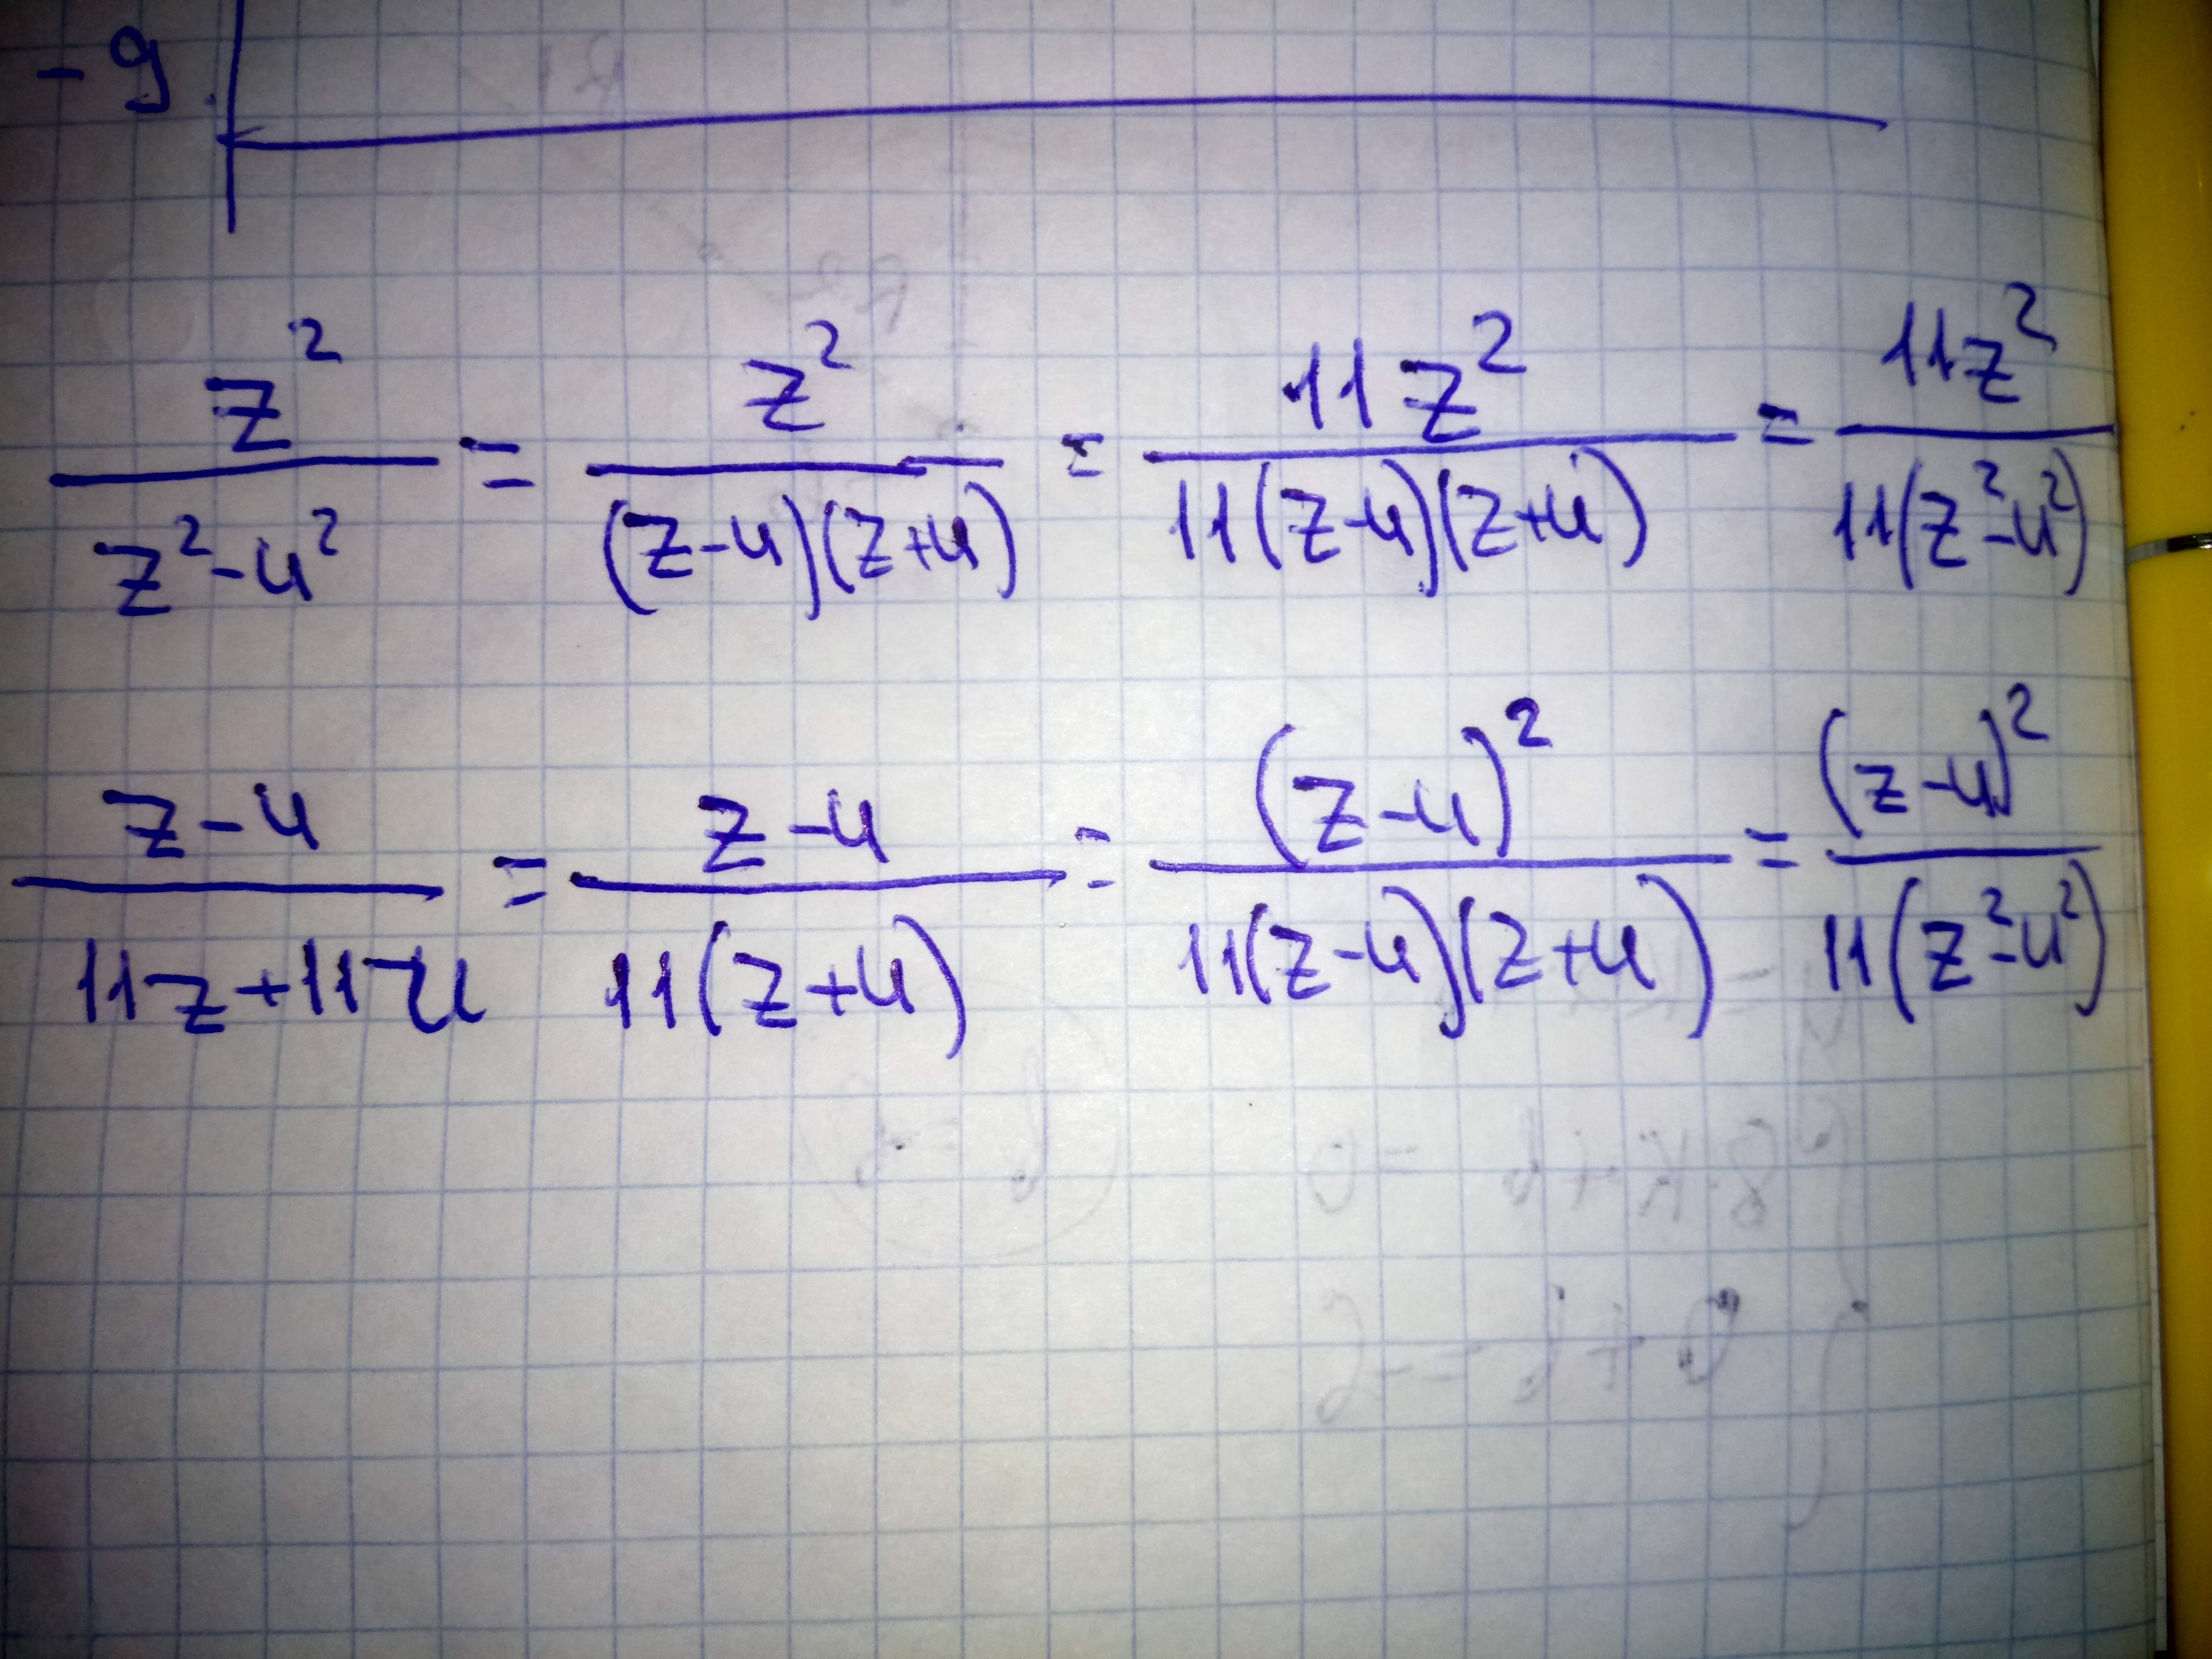 -9
z²/(z²-u²) = z²/((z-u)(z+u)) = 11z²/(11(z-u)(z+u)) = 11z²/(11(z²-u²))
(z-u)/(11z+11u) = (z-u)/(11(z+u)) = (z-u)²/(11(z-u)(z+u)) = (z-u)²/(11(z²-u²))